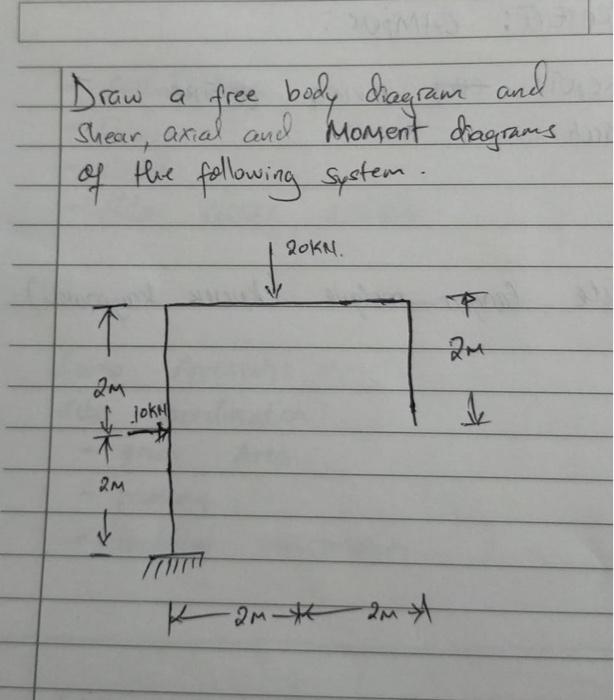 Draw a free body diagram and
Shear, axial and Moment diagrams
of the following system.
20KN.
2M
2M
10KN
2M
2M 2M